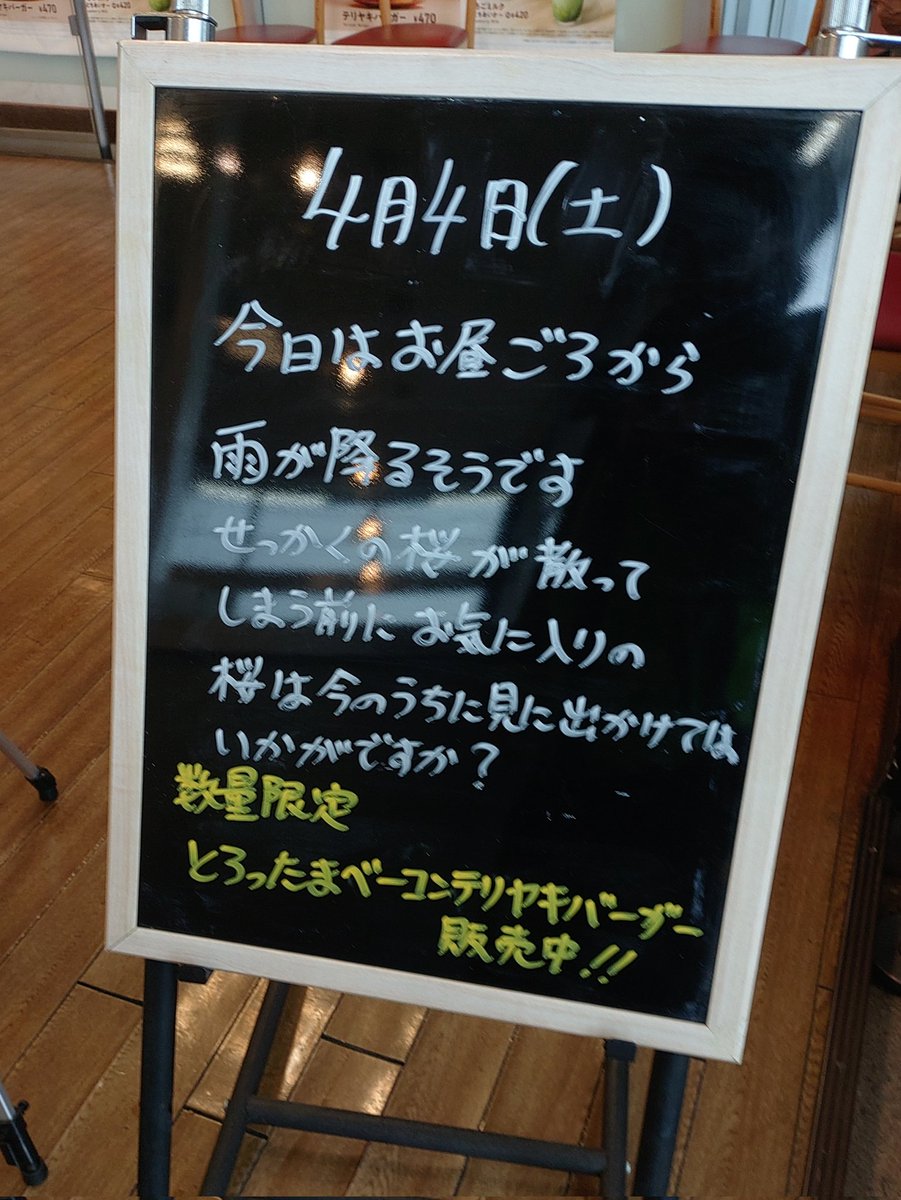 テリヤキバーガー ¥470
4月4日(土)
今日はお昼ごろから
雨が降るそうです
せっかくの桜が散って
しまう前にお気に入りの
桜は今のうちに見に出かけては
いかがですか?
数量限定
とろったまベーコンテリヤキバーガー
販売中!!